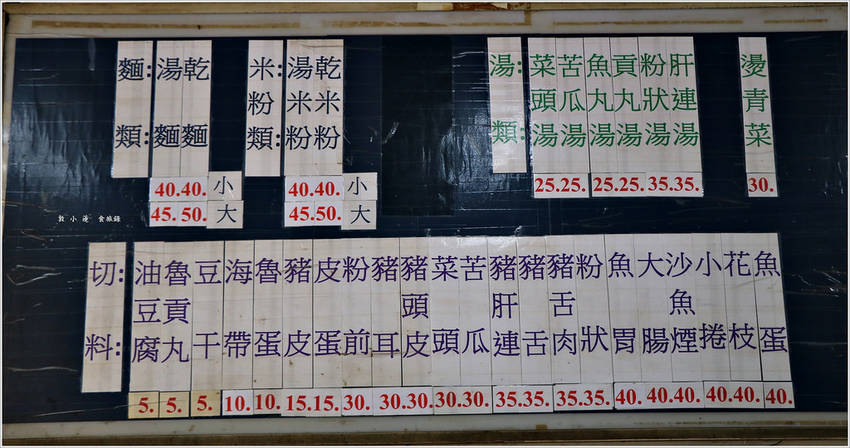 麵:類:
湯麵
乾麵
40.40.小
45.50.大
米粉類:
湯米粉
乾米粉
40.40.小
45.50.大
湯:類:
菜頭湯
苦瓜湯
魚丸湯
貢丸湯
粉狀湯
肝連湯
25.25.
25.25.
35.35.
燙青菜
30.
敦小漫 食旅錄
切:料:
油豆腐
魯貢丸
豆干
海帶
魯蛋
豬皮
皮蛋
粉前
豬耳
豬頭皮
菜頭
苦瓜
豬肝連
豬舌
豬舌肉
粉狀
魚胃
大腸
沙魚煙
小捲
花枝
魚蛋
5. 5. 5. 10. 10. 15.15. 30. 30.30. 30.30. 35.35. 35.35. 40. 40.40. 40.40. 40.